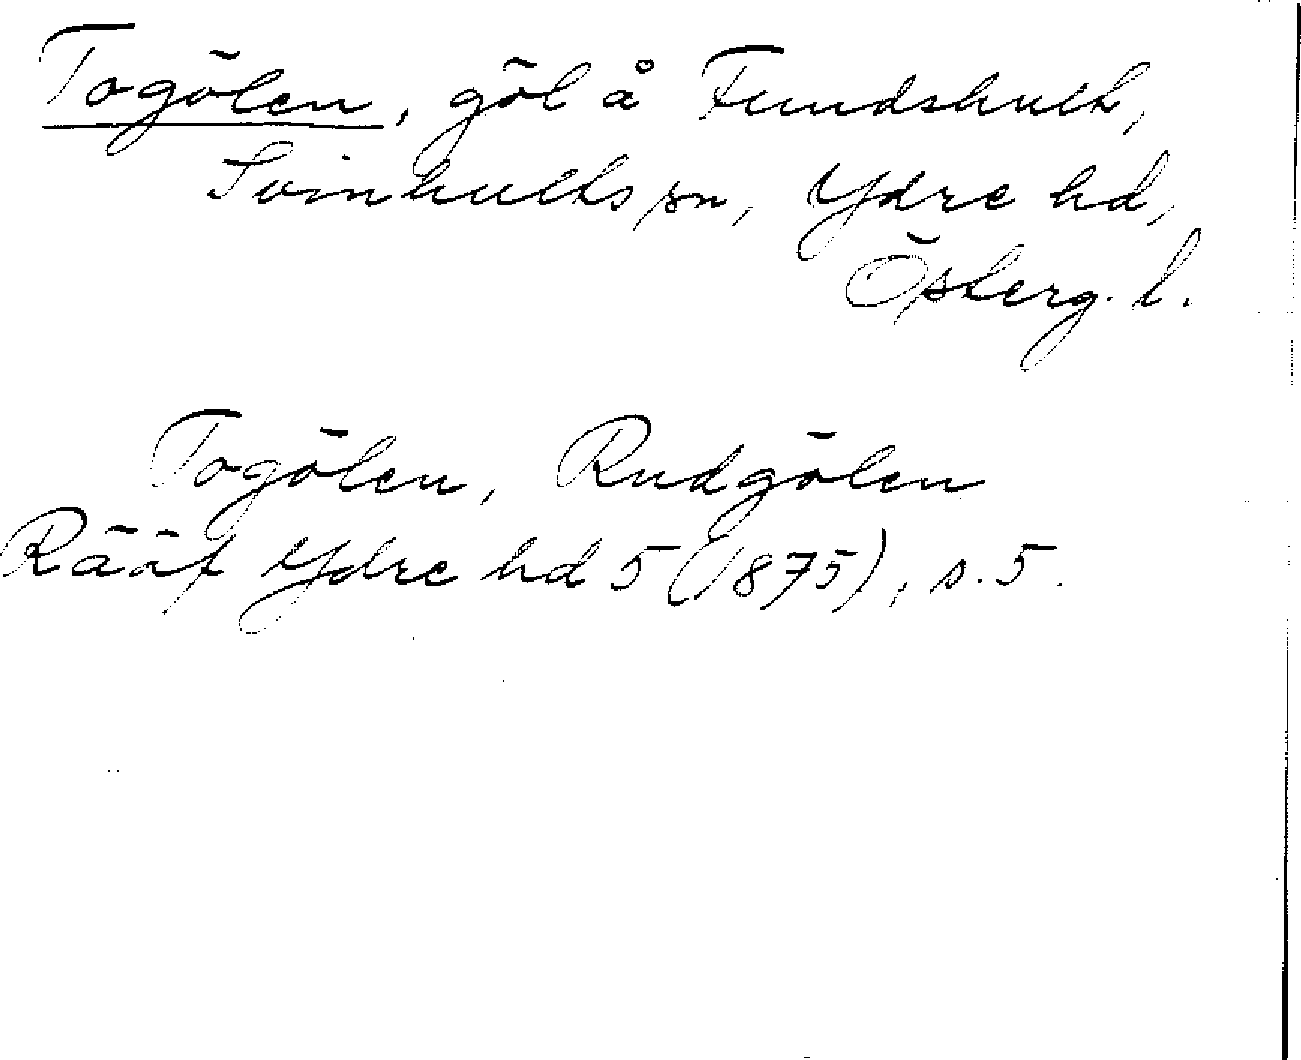 Togölen, göl å Fundshult,
Svinhults sn, Ydre hd,
Österg. l.
Togölen, Rudgölen
Rääf Ydre hd 5 (1875), s. 5.